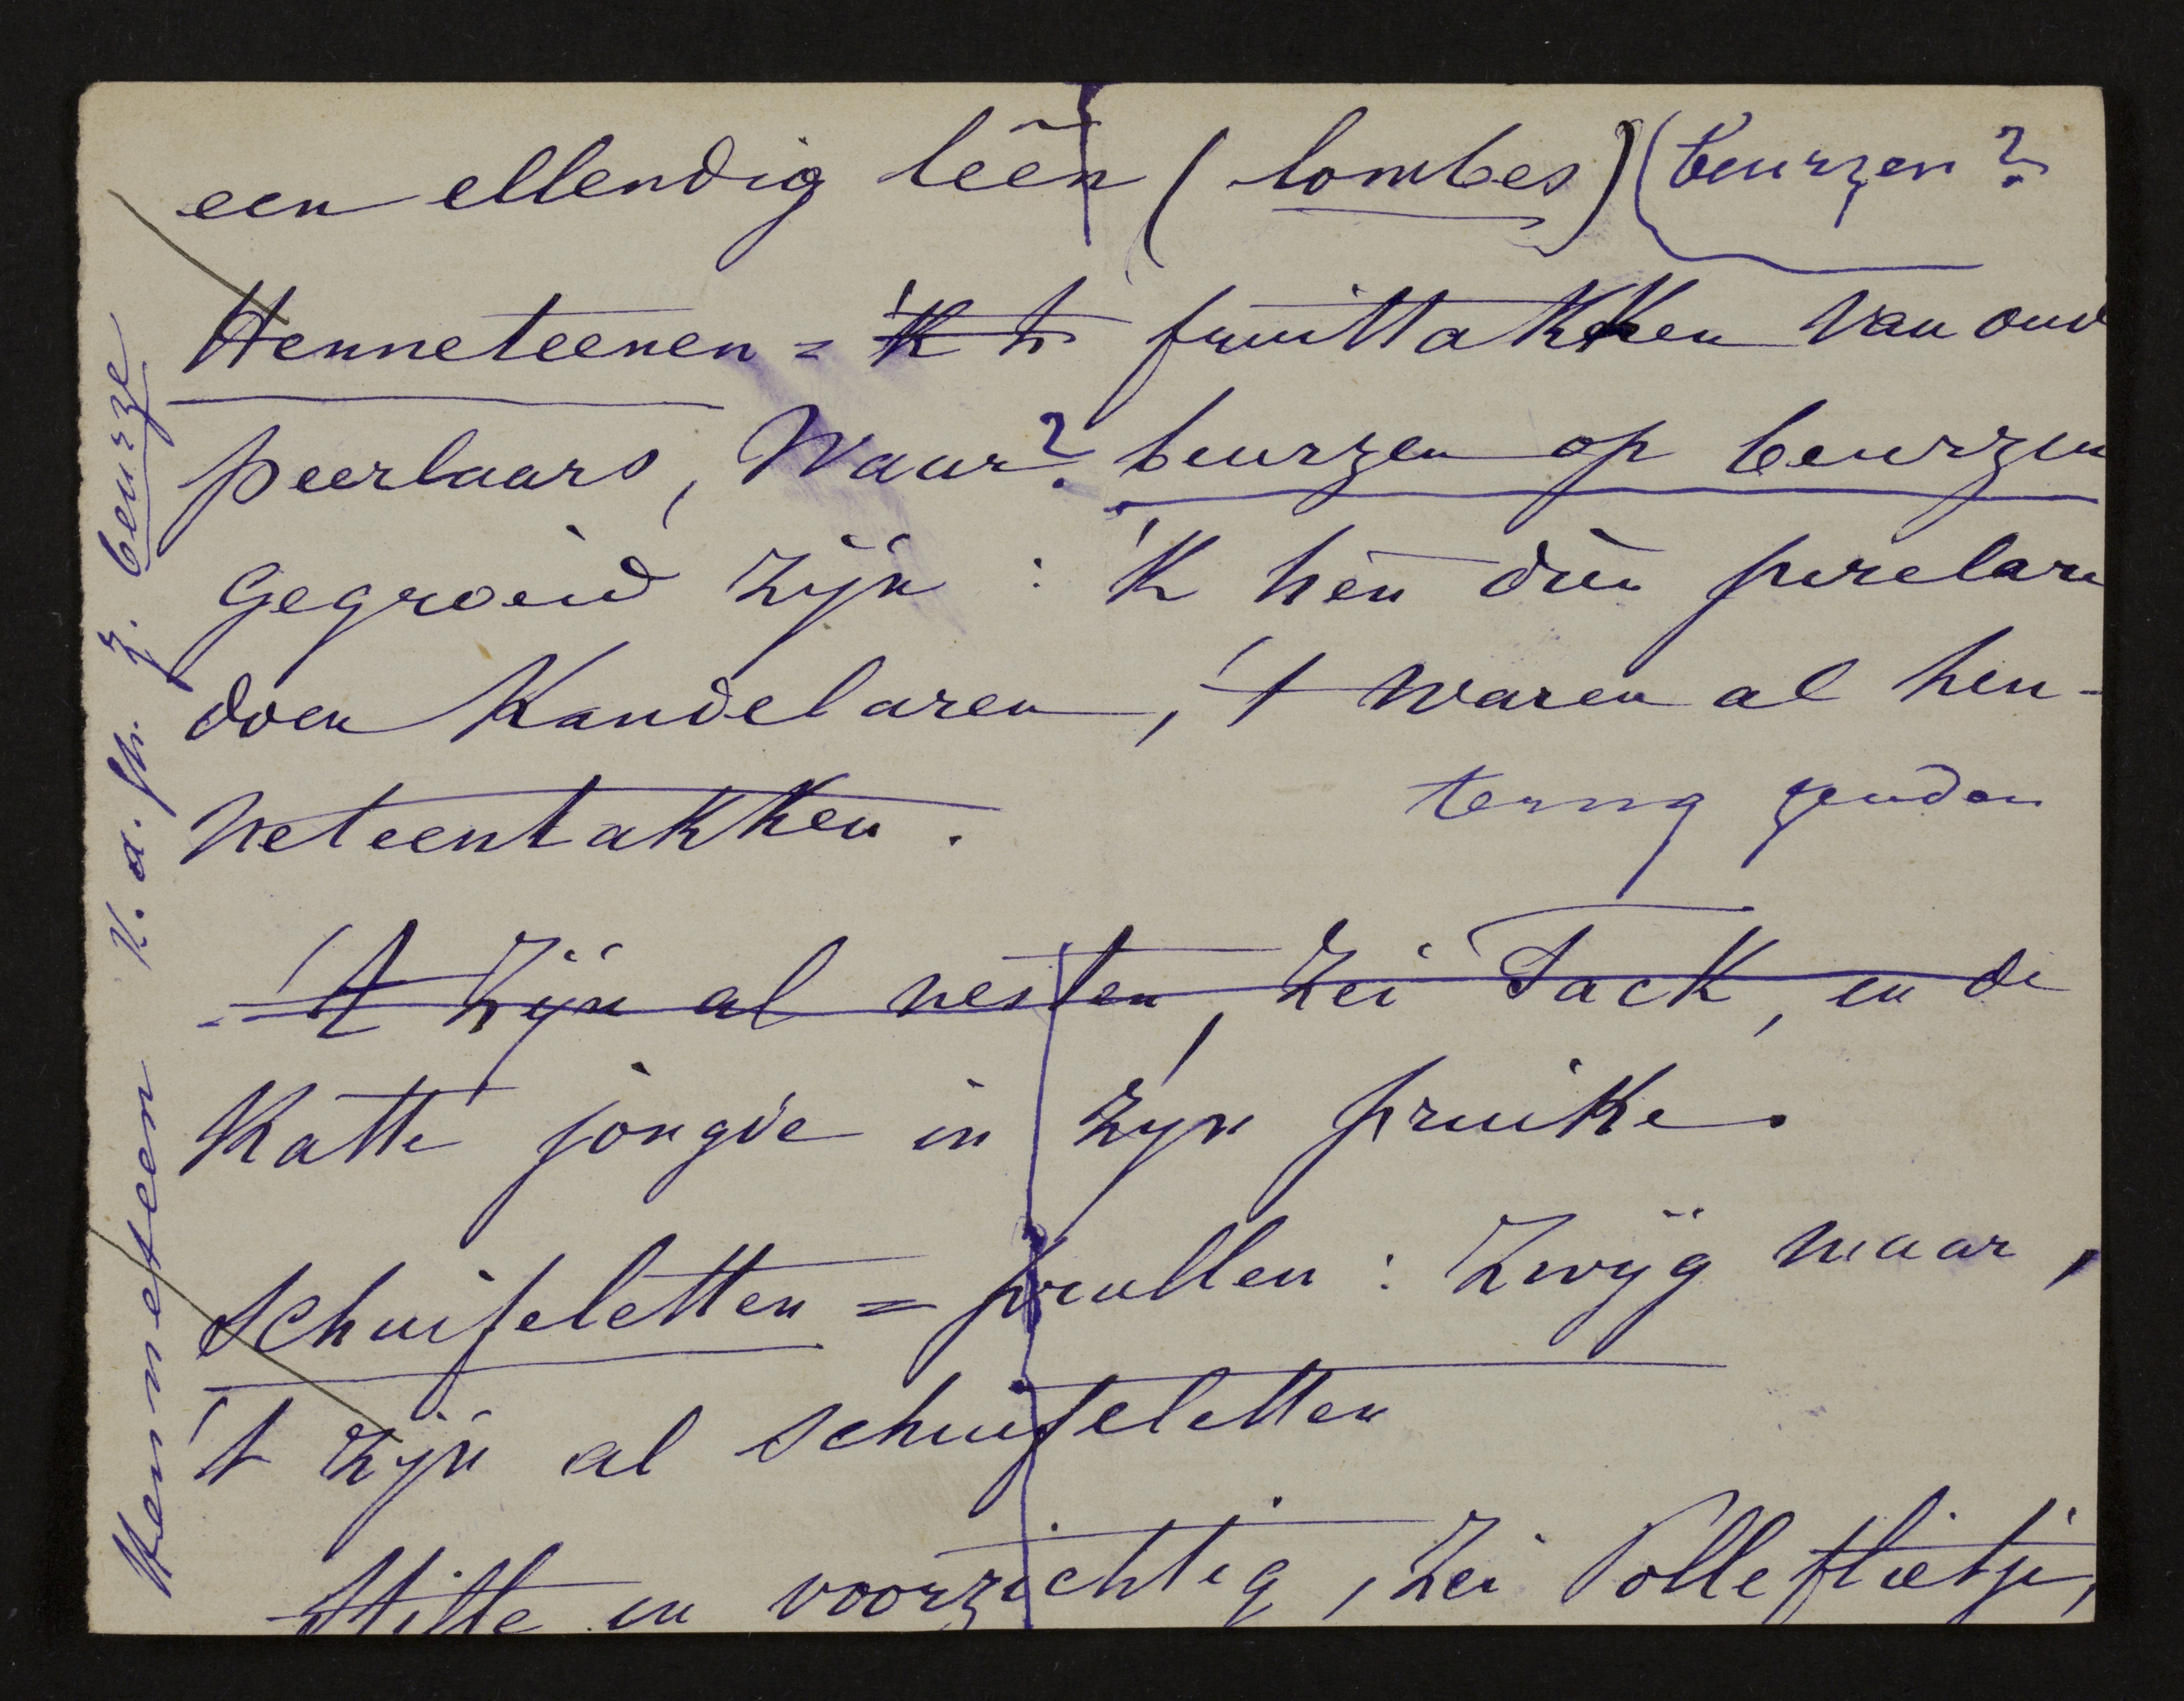 een ellendig lēēn (lombes) (beurzen?
Henneteenen = 'k h fruittakken van oud
peerlaars, Waar? beurzen op beurzen
gegroeid zijn : 'k hèn dien perelare
doen Kandelaren, 't waren al hen-
neteentakken.
terug zenden
- 't zijn al nesten, zei Tack, en de
Katte jongde in zijn pruike.
Schuifeletten = prullen : Zwijg maar,
't zijn al schuifeletten
Stille en voorzichtig, zei Polleflietje,
Henneteen V. d. fr. z. beurze